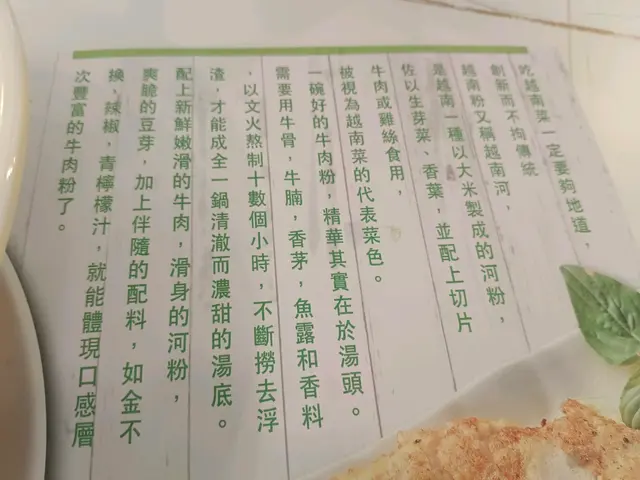 吃越南菜一定要夠地道，
創新而不拘傳統
越南粉又稱越南河，
是越南一種以大米製成的河粉，
佐以生芽菜、香葉，並配上切片
牛肉或雞絲食用，
被視為越南菜的代表菜色。
一碗好的牛肉粉，精華其實在於湯頭。
需要用牛骨，牛腩，香茅，魚露和香料
，以文火熬制十數個小時，不斷撈去浮
渣，才能成全一鍋清澈而濃甜的湯底。
配上新鮮嫩滑的牛肉，滑身的河粉，
爽脆的豆芽，加上伴隨的配料，如金不
換，辣椒，青檸檬汁，就能體現口感層
次豐富的牛肉粉了。